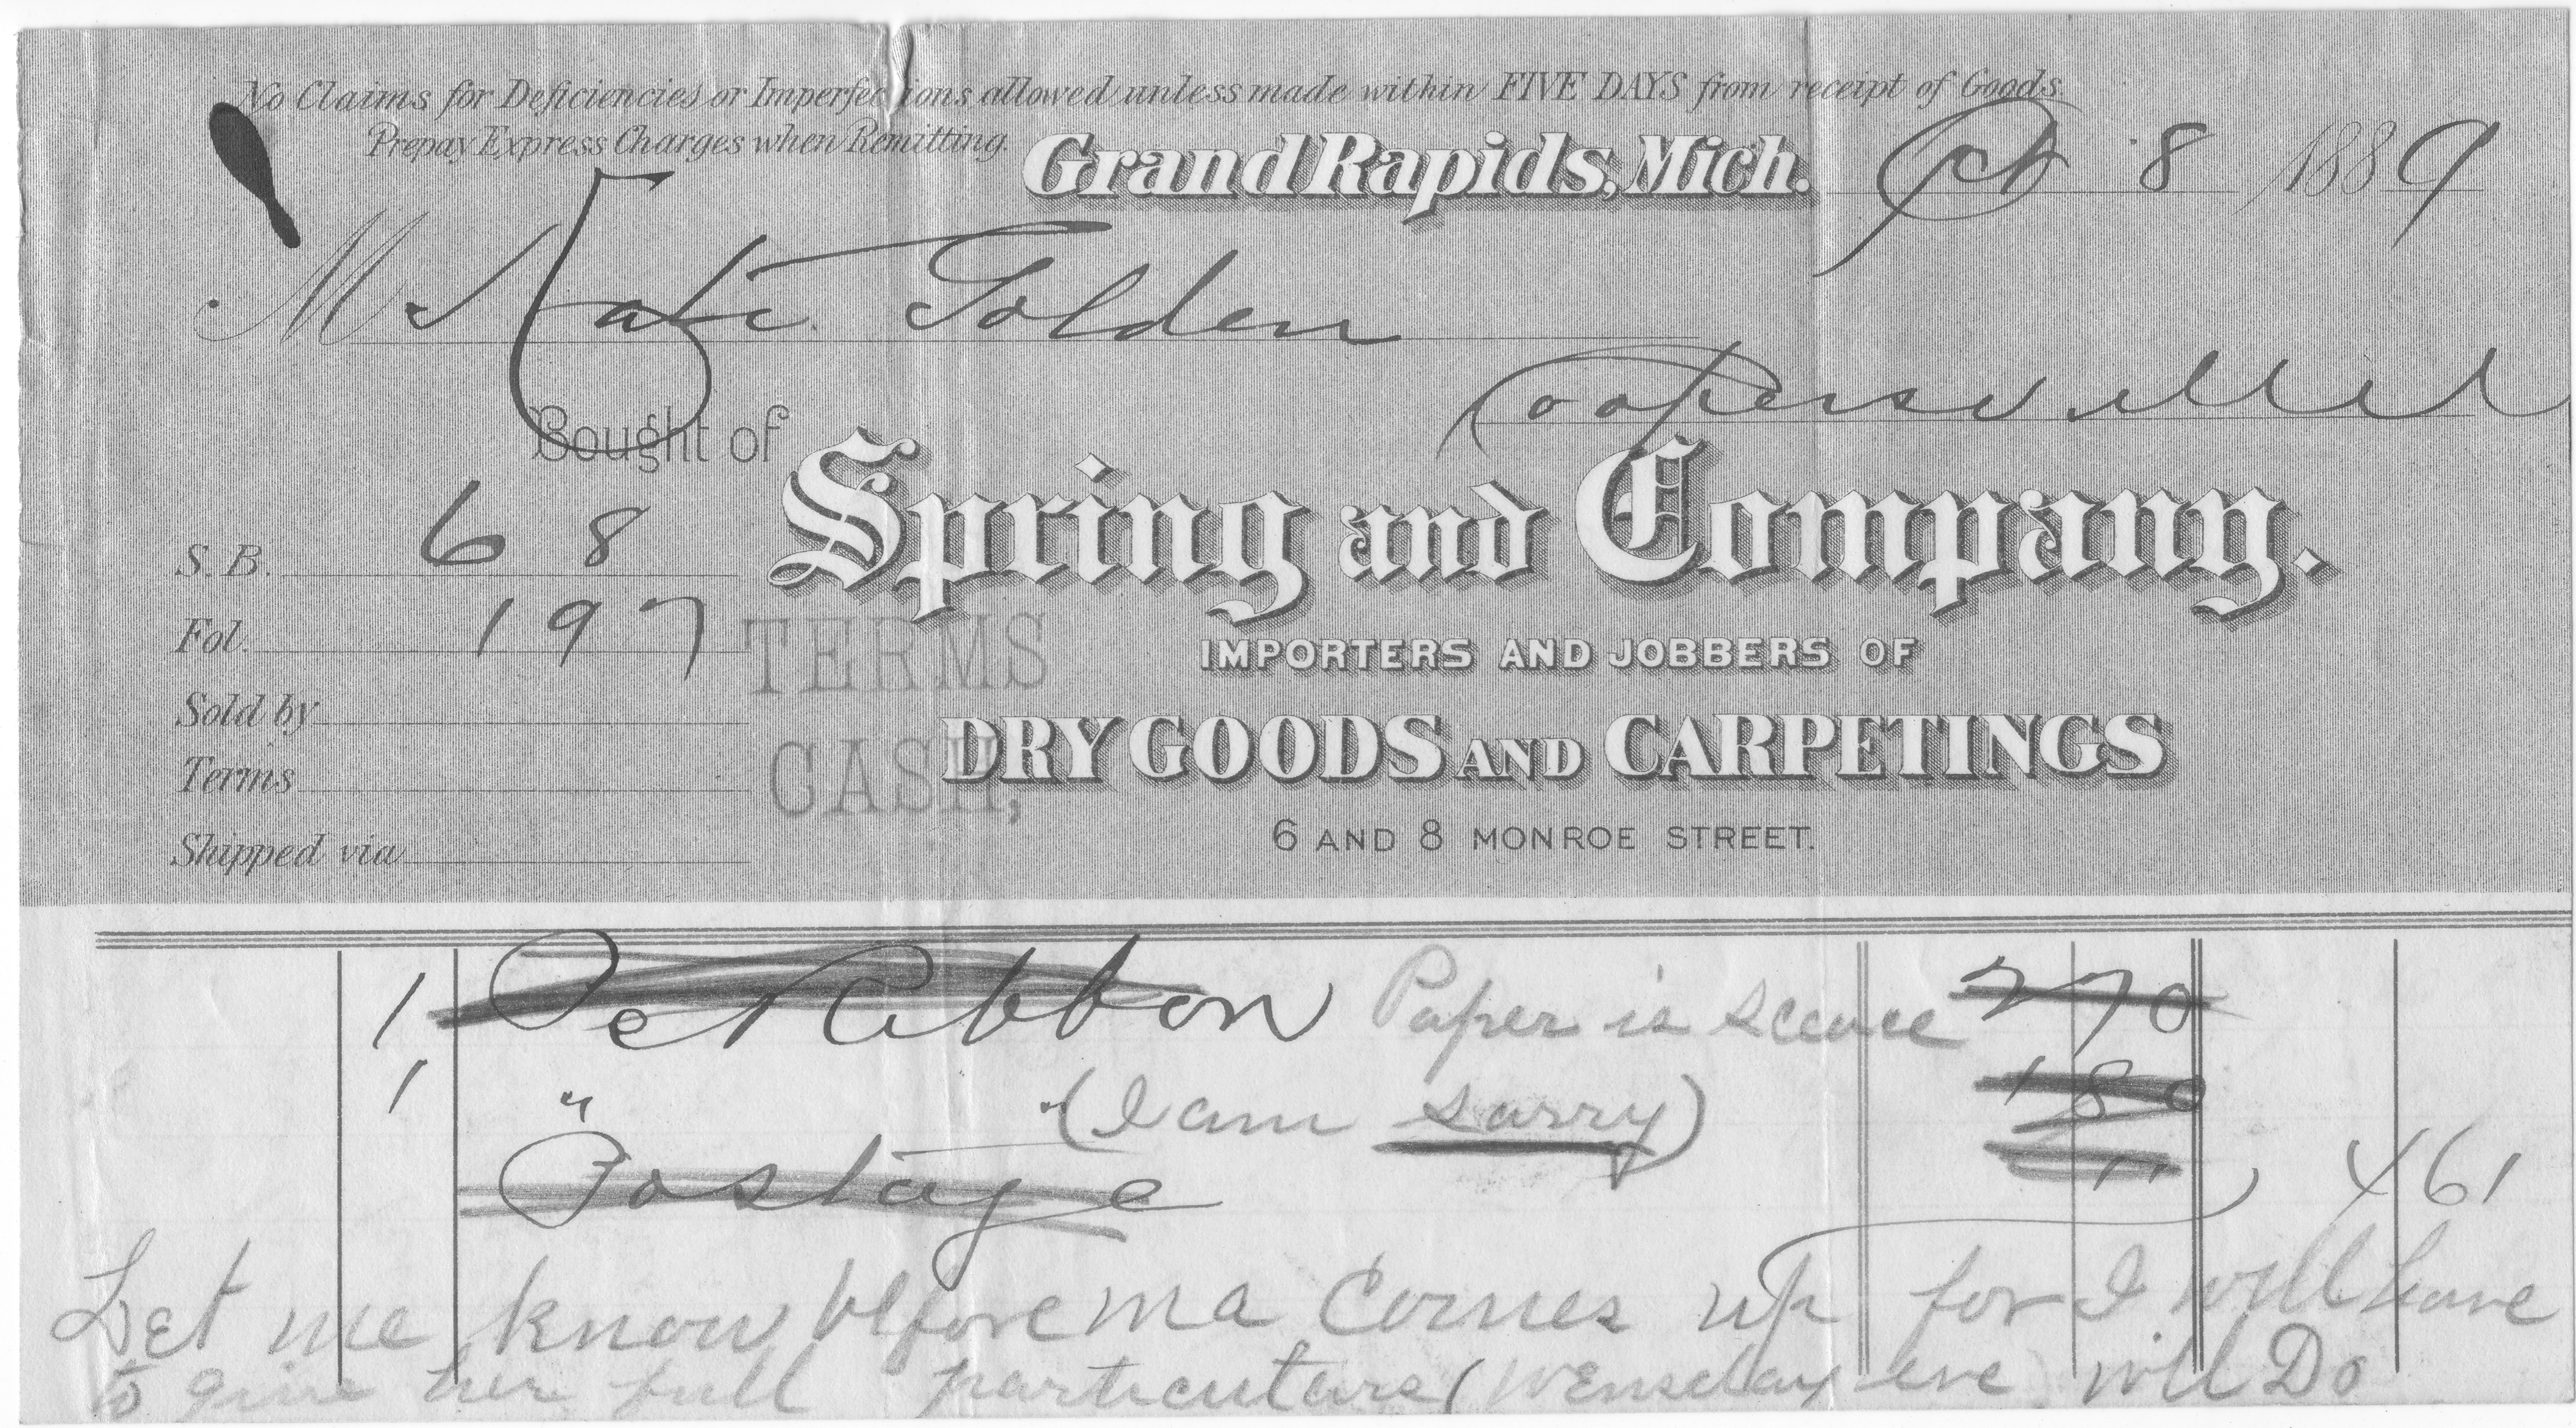 No Claims for Deficiencies or Imperfections allowed unless made within FIVE DAYS from receipt of Goods.
Prepay Express Charges when Remitting.
Grand Rapids, Mich. Oct 8 1889
M Kate Golden
Coopersville
Bought of
Spring and Company.
S. B. 68
Fol. 197
TERMS
CASH,
IMPORTERS AND JOBBERS OF
Sold by
DRY GOODS AND CARPETINGS
Terms
6 AND 8 MONROE STREET.
Shipped via
1 Pc Ribbon Paper is scearce 2 70
1 " " (I am sorry) 1 80
Postage 11 4 61
Let me know before ma Comes up for I will have
to give her full particulars (Wensday eve will Do